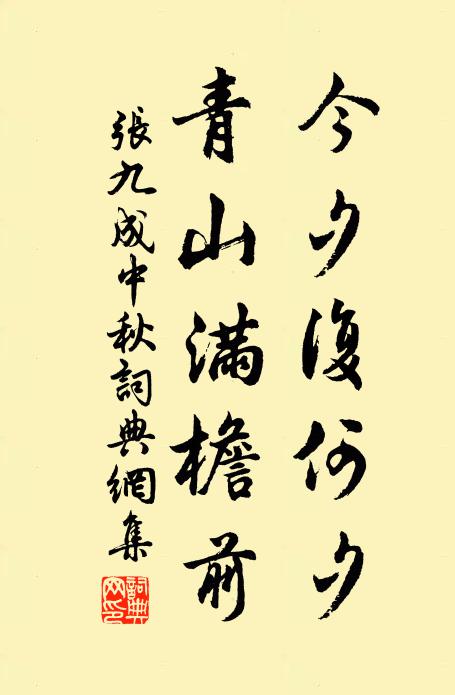 今夕復何夕
青山滿檐前
張九成中秋詞典網集
詞典
網印